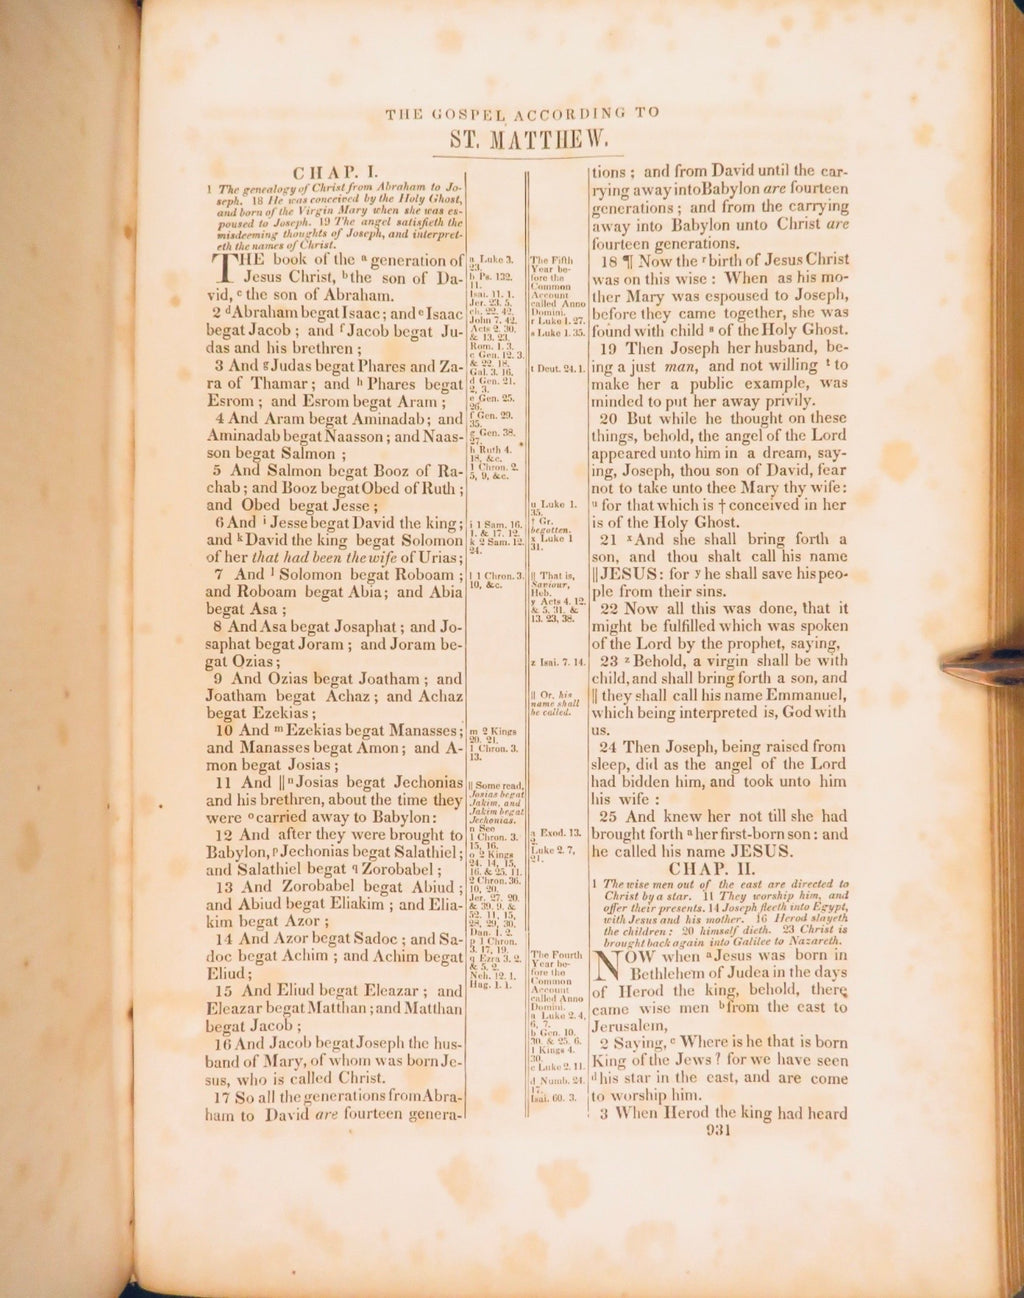 THE GOSPEL ACCORDING TO
ST. MATTHEW.
CHAP. I.
1 The genealogy of Christ from Abraham to Jo-
seph. 18 He was conceived by the Holy Ghost,
and born of the Virgin Mary when she was es-
poused to Joseph. 19 The angel satisfieth the
misdeeming thoughts of Joseph, and interpret-
eth the names of Christ.
THE book of the a generation of
Jesus Christ, b the son of Da-
vid, c the son of Abraham.
2 d Abraham begat Isaac; and e Isaac
begat Jacob; and f Jacob begat Ju-
das and his brethren;
3 And g Judas begat Phares and Za-
ra of Thamar; and h Phares begat
Esrom; and Esrom begat Aram;
4 And Aram begat Aminadab; and
Aminadab begat Naasson; and Naas-
son begat Salmon;
5 And Salmon begat Booz of Ra-
chab; and Booz begat Obed of Ruth;
and Obed begat Jesse;
6 And i Jesse begat David the king;
and k David the king begat Solomon
of her that had been the wife of Urias;
7 And l Solomon begat Roboam;
and Roboam begat Abia; and Abia
begat Asa;
8 And Asa begat Josaphat; and Jo-
saphat begat Joram; and Joram be-
gat Ozias;
9 And Ozias begat Joatham; and
Joatham begat Achaz; and Achaz
begat Ezekias;
10 And m Ezekias begat Manasses;
and Manasses begat Amon; and A-
mon begat Josias;
11 And || n Josias begat Jechonias
and his brethren, about the time they
were o carried away to Babylon:
12 And after they were brought to
Babylon, p Jechonias begat Salathiel;
and Salathiel begat q Zorobabel;
13 And Zorobabel begat Abiud;
and Abiud begat Eliakim; and Elia-
kim begat Azor;
14 And Azor begat Sadoc; and Sa-
doc begat Achim; and Achim begat
Eliud;
15 And Eliud begat Eleazar; and
Eleazar begat Matthan; and Matthan
begat Jacob;
16 And Jacob begat Joseph the hus-
band of Mary, of whom was born Je-
sus, who is called Christ.
17 So all the generations from Abra-
ham to David are fourteen genera-
a Luke 3.
23.
b Ps. 132.
11.
Isai. 11. 1.
Jer. 23. 5.
ch. 22. 42.
John 7. 42.
Acts 2. 30.
& 13. 23.
Rom. 1. 3.
c Gen. 12. 3.
& 22. 18.
Gal. 3. 16.
d Gen. 21.
2, 3.
e Gen. 25.
26.
f Gen. 29.
35.
g Gen. 38.
27.
h Ruth 4.
18, &c.
1 Chron. 2.
5, 9, &c.
i 1 Sam. 16.
1. & 17. 12.
k 2 Sam. 12.
24.
l 1 Chron. 3.
10, &c.
m 2 Kings
20. 21.
1 Chron. 3.
13.
|| Some read,
Josias begat
Jakim, and
Jakim begat
Jechonias.
n See
1 Chron. 3.
15, 16.
o 2 Kings
24. 14, 15,
16. & 25. 11.
2 Chron. 36.
10, 20.
Jer. 27. 20.
& 39. 9. &
52. 11, 15,
28, 29, 30.
Dan. 1. 2.
p 1 Chron.
3. 17, 19.
q Ezra 3. 2.
& 5. 2.
Neh. 12. 1.
Hag. 1. 1.
The Fifth
Year be-
fore the
Common
Account
called Anno
Domini.
r Luke 1. 27.
s Luke 1. 35.
t Deut. 24. 1.
u Luke 1.
35.
† Gr.
begotten.
x Luke 1
31.
|| That is,
Saviour,
Heb.
y Acts 4. 12.
& 5. 31. &
13. 23, 38.
z Isai. 7. 14.
|| Or, his
name shall
be called.
a Exod. 13.
2.
Luke 2. 7,
21.
The Fourth
Year be-
fore the
Common
Account
called Anno
Domini.
a Luke 2. 4,
6, 7.
b Gen. 10.
30. & 25. 6.
1 Kings 4.
30.
c Luke 2. 11.
d Numb. 24.
17.
Isai. 60. 3.
tions; and from David until the car-
rying away into Babylon are fourteen
generations; and from the carrying
away into Babylon unto Christ are
fourteen generations.
18 ¶ Now the r birth of Jesus Christ
was on this wise: When as his mo-
ther Mary was espoused to Joseph,
before they came together, she was
found with child s of the Holy Ghost.
19 Then Joseph her husband, be-
ing a just man, and not willing t to
make her a public example, was
minded to put her away privily.
20 But while he thought on these
things, behold, the angel of the Lord
appeared unto him in a dream, say-
ing, Joseph, thou son of David, fear
not to take unto thee Mary thy wife:
u for that which is † conceived in her
is of the Holy Ghost.
21 x And she shall bring forth a
son, and thou shalt call his name
|| JESUS: for y he shall save his peo-
ple from their sins.
22 Now all this was done, that it
might be fulfilled which was spoken
of the Lord by the prophet, saying,
23 z Behold, a virgin shall be with
child, and shall bring forth a son, and
|| they shall call his name Emmanuel,
which being interpreted is, God with
us.
24 Then Joseph, being raised from
sleep, did as the angel of the Lord
had bidden him, and took unto him
his wife:
25 And knew her not till she had
brought forth a her first-born son: and
he called his name JESUS.
CHAP. II.
1 The wise men out of the east are directed to
Christ by a star. 11 They worship him, and
offer their presents. 14 Joseph fleeth into Egypt,
with Jesus and his mother. 16 Herod slayeth
the children: 20 himself dieth. 23 Christ is
brought back again into Galilee to Nazareth.
NOW when a Jesus was born in
Bethlehem of Judea in the days
of Herod the king, behold, there
came wise men b from the east to
Jerusalem,
2 Saying, c Where is he that is born
King of the Jews? for we have seen
d his star in the east, and are come
to worship him.
3 When Herod the king had heard
931